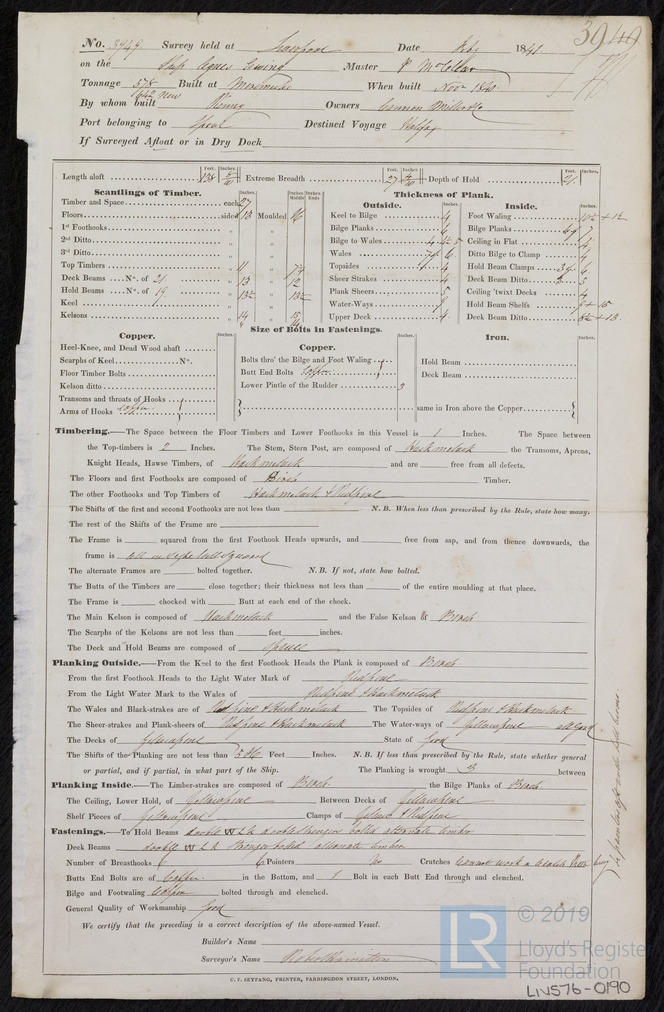 3949
No. 3949 Survey held at Liverpool Date Feby 1841
on the Ship Agnes Ewing Master P McCellar
Tonnage 578 Built at Miramichi When built Novr 1840
642 New
By whom built Owners Cannon Miller & Co
Port belonging to Lpool Destined Voyage Halifax
If Surveyed Afloat or in Dry Dock
Length aloft Feet. 138 Inches. Extreme Breadth Feet. 27 Inches. Depth of Hold Feet. 21 Inches.
Scantlings of Timber.
Timber and Space each 27
Floors sided 13 Moulded 16
1st Foothooks "
2nd Ditto "
3rd Ditto "
Top Timbers 11
Deck Beams No. of 21 13 " 12
Hold Beams No. of 19 13½ " 13½
Keel " "
Kelsons 14 " 15
Thickness of Plank.
Outside.
Keel to Bilge 4
Bilge Planks
Bilge to Wales
Wales
Topsides 4
Sheer Strakes 4
Plank Sheers 5
Water-Ways 9
Upper Deck 4
Inside.
Foot Waling
Bilge Planks
Ceiling in Flat
Ditto Bilge to Clamp 4
Hold Beam Clamps
Deck Beam Ditto
Ceiling 'twixt Decks 4
Hold Beam Shelfs
Deck Beam Ditto
Size of Bolts in Fastenings.
Copper.
Heel-Knee, and Dead Wood abaft
Scarphs of Keel No.
Floor Timber Bolts
Kelson ditto
Transoms and throats of Hooks
Arms of Hooks Copper
Copper.
Bolts thro' the Bilge and Foot Waling
Butt End Bolts Copper
Lower Pintle of the Rudder 3
Iron.
Hold Beam
Deck Beam
same in Iron above the Copper
Timbering.—The Space between the Floor Timbers and Lower Foothooks in this Vessel is 1 Inches. The Space between
the Top-timbers is 2 Inches. The Stem, Stern Post, are composed of Hackmatack the Transoms, Aprons,
Knight Heads, Hawse Timbers, of Hackmatack and are free from all defects.
The Floors and first Foothooks are composed of Birch Timber.
The other Foothooks and Top Timbers of Hackmatack & Redpine
The Shifts of the first and second Foothooks are not less than N. B. When less than prescribed by the Rule, state how many.
The rest of the Shifts of the Frame are
The Frame is squared from the first Foothook Heads upwards, and free from sap, and from thence downwards, the
frame is all well squared
The alternate Frames are bolted together. N.B. If not, state how bolted.
The Butts of the Timbers are close together; their thickness not less than of the entire moulding at that place.
The Frame is chocked with Butt at each end of the chock.
The Main Kelson is composed of Hackmatack and the False Kelson Birch
The Scarphs of the Kelsons are not less than feet inches.
The Deck and Hold Beams are composed of Spruce
Planking Outside.—From the Keel to the first Foothook Heads the Plank is composed of Birch
From the first Foothook Heads to the Light Water Mark of Redpine
From the Light Water Mark to the Wales of Redpine & Hackmatack
The Wales and Black-strakes are of Redpine & Hackmatack The Topsides of Redpine & Hackmatack
The Sheer-strakes and Plank-sheers of Redpine & Hackmatack The Water-ways of Yellowpine all Good
The Decks of Yellowpine State of Good
The Shifts of the Planking are not less than 5 Feet Inches. N. B. If less than prescribed by the Rule, state whether general
or partial, and if partial, in what part of the Ship. The Planking is wrought 3 between
Planking Inside.—The Limber-strakes are composed of Birch the Bilge Planks of Birch
The Ceiling, Lower Hold, of Yellowpine Between Decks of Yellowpine
Shelf Pieces of Yellowpine Clamps of Yellow & Redpine
Fastenings.—To Hold Beams double W L K & double Stringer bolted alternate timber
Deck Beams double W L K Stringer bolted alternate timber
Number of Breasthooks 6 6 Pointers No Crutches
Butts End Bolts are of Copper in the Bottom, and 1 Bolt in each Butt End through and clenched.
Bilge and Footwaling Copper bolted through and clenched.
General Quality of Workmanship Good
We certify that the preceding is a correct description of the above-named Vessel.
Builder's Name
Surveyor's Name
C. F. SEYFANG, PRINTER, FARRINGDON STREET, LONDON.
LR
© 2019
Lloyd's Register
Foundation
LIV576-0190